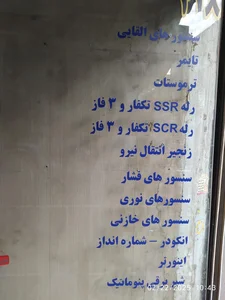 سنسورهای القایی
تایمر
ترموستات
رله SSR تکفاز و ۳ فاز
رله SCR تکفاز و ۳ فاز
زنجیر انتقال نیرو
سنسور های فشار
سنسورهای نوری
سنسور های خازنی
انکودر – شماره انداز
اینورتر
شیر برقی پنوماتیک
10:43